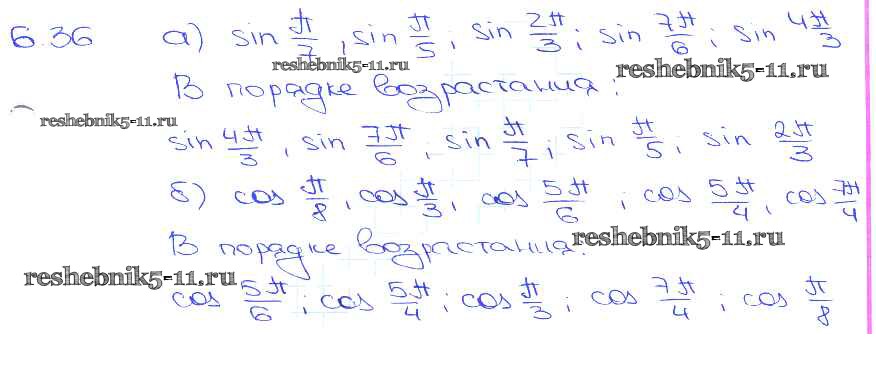 6.36 а) sin π/7, sin π/5; sin 2π/3; sin 7π/6; sin 4π/3
reshebnik5-11.ru
reshebnik5-11.ru
В порядке возрастания:
reshebnik5-11.ru
sin 4π/3, sin 7π/6; sin π/7; sin π/5; sin 2π/3
б) cos π/8, cos π/3, cos 5π/6; cos 5π/4, cos 7π/4
В порядке возрастания:
reshebnik5-11.ru
reshebnik5-11.ru
cos 5π/6; cos 5π/4; cos π/3; cos 7π/4; cos π/8